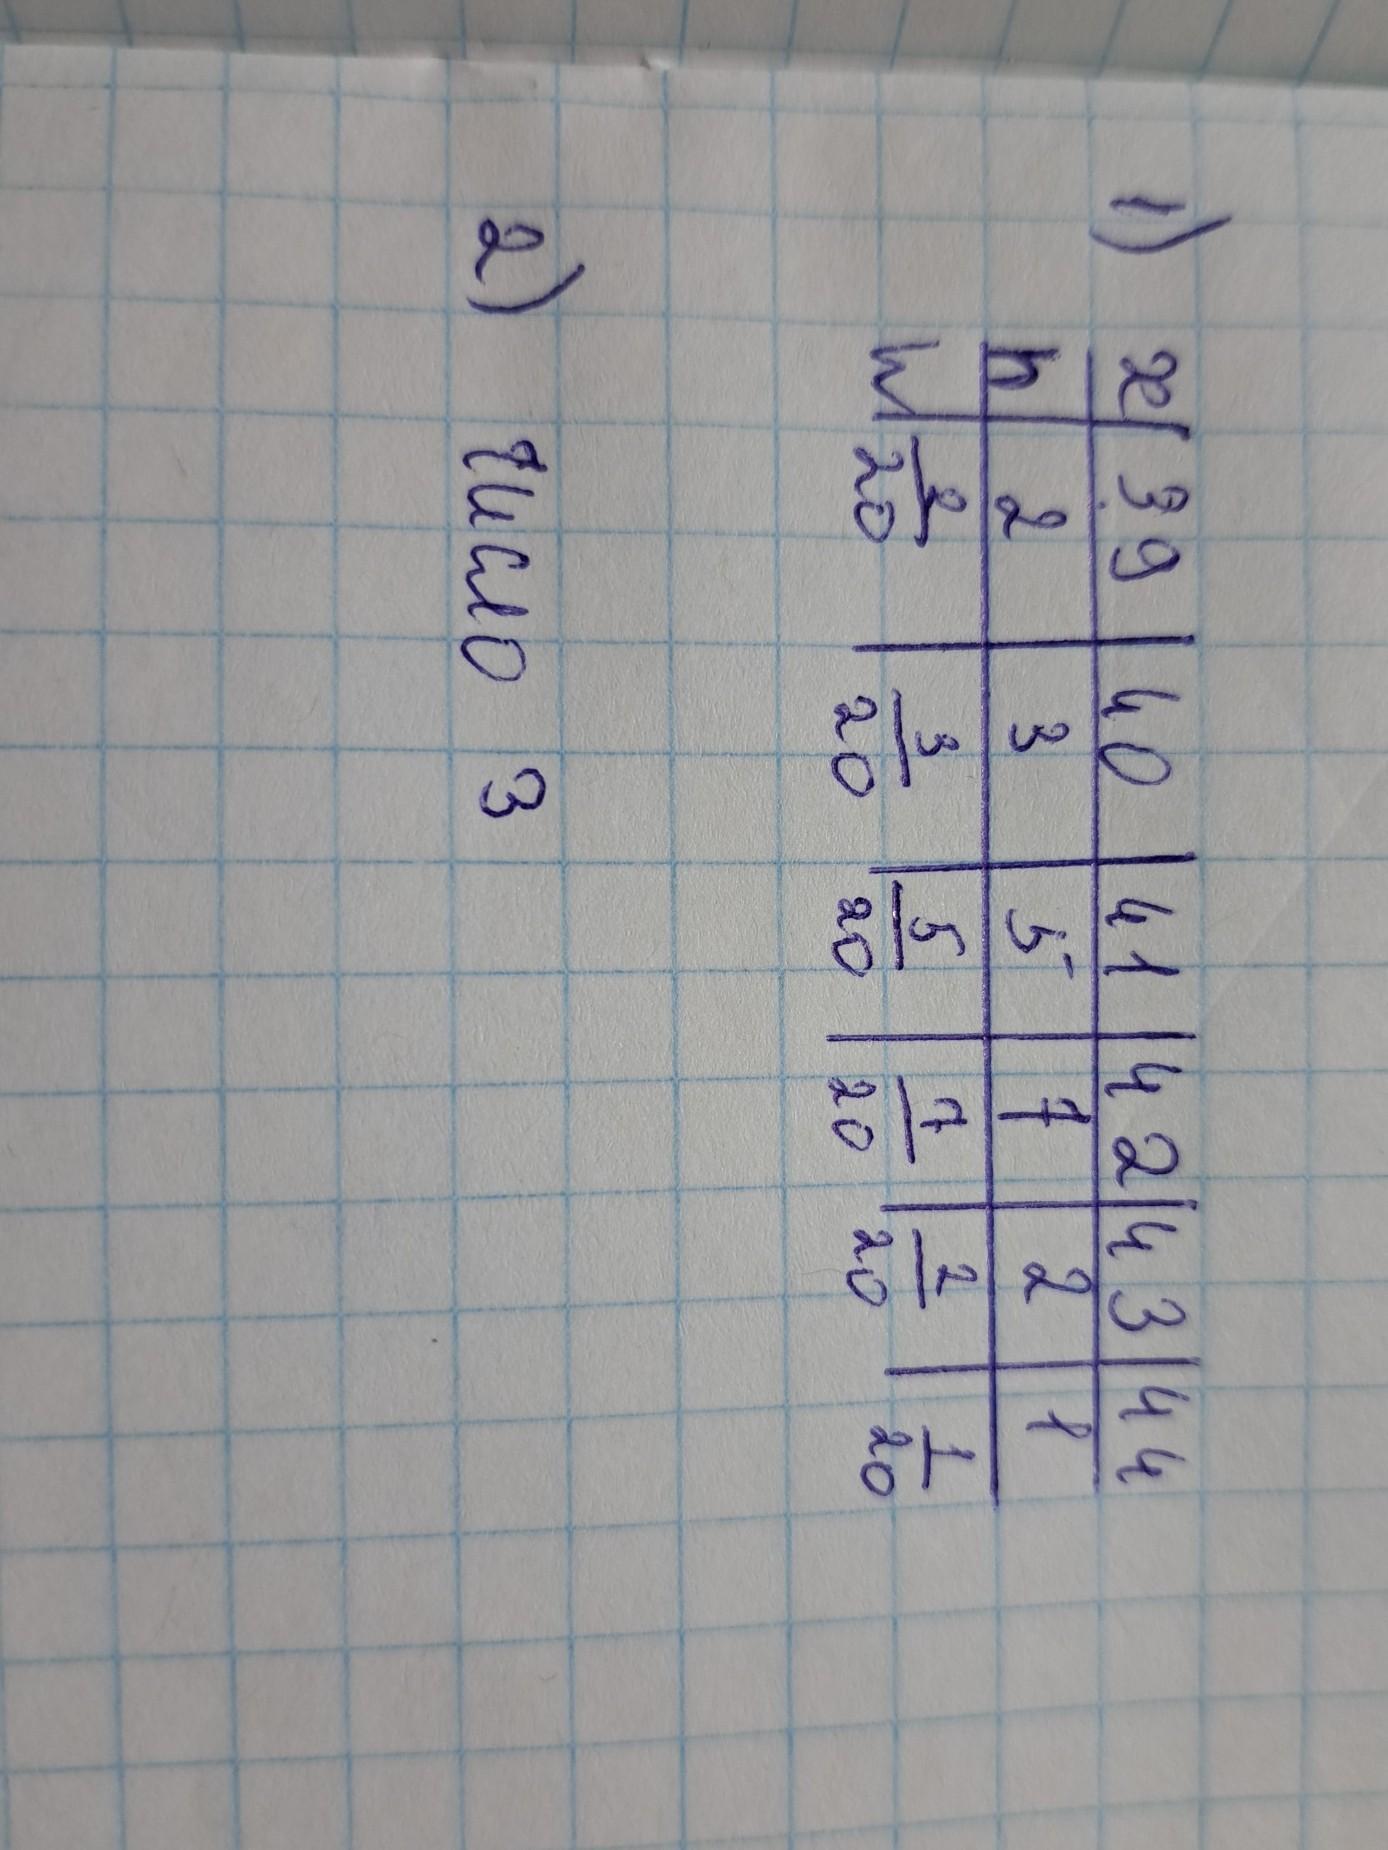 1) x | 39 | 40 | 41 | 42 | 43 | 44
n | 2 | 3 | 5 | 7 | 2 | 1
W | 2/20 | 3/20 | 5/20 | 7/20 | 2/20 | 1/20
2) число 3